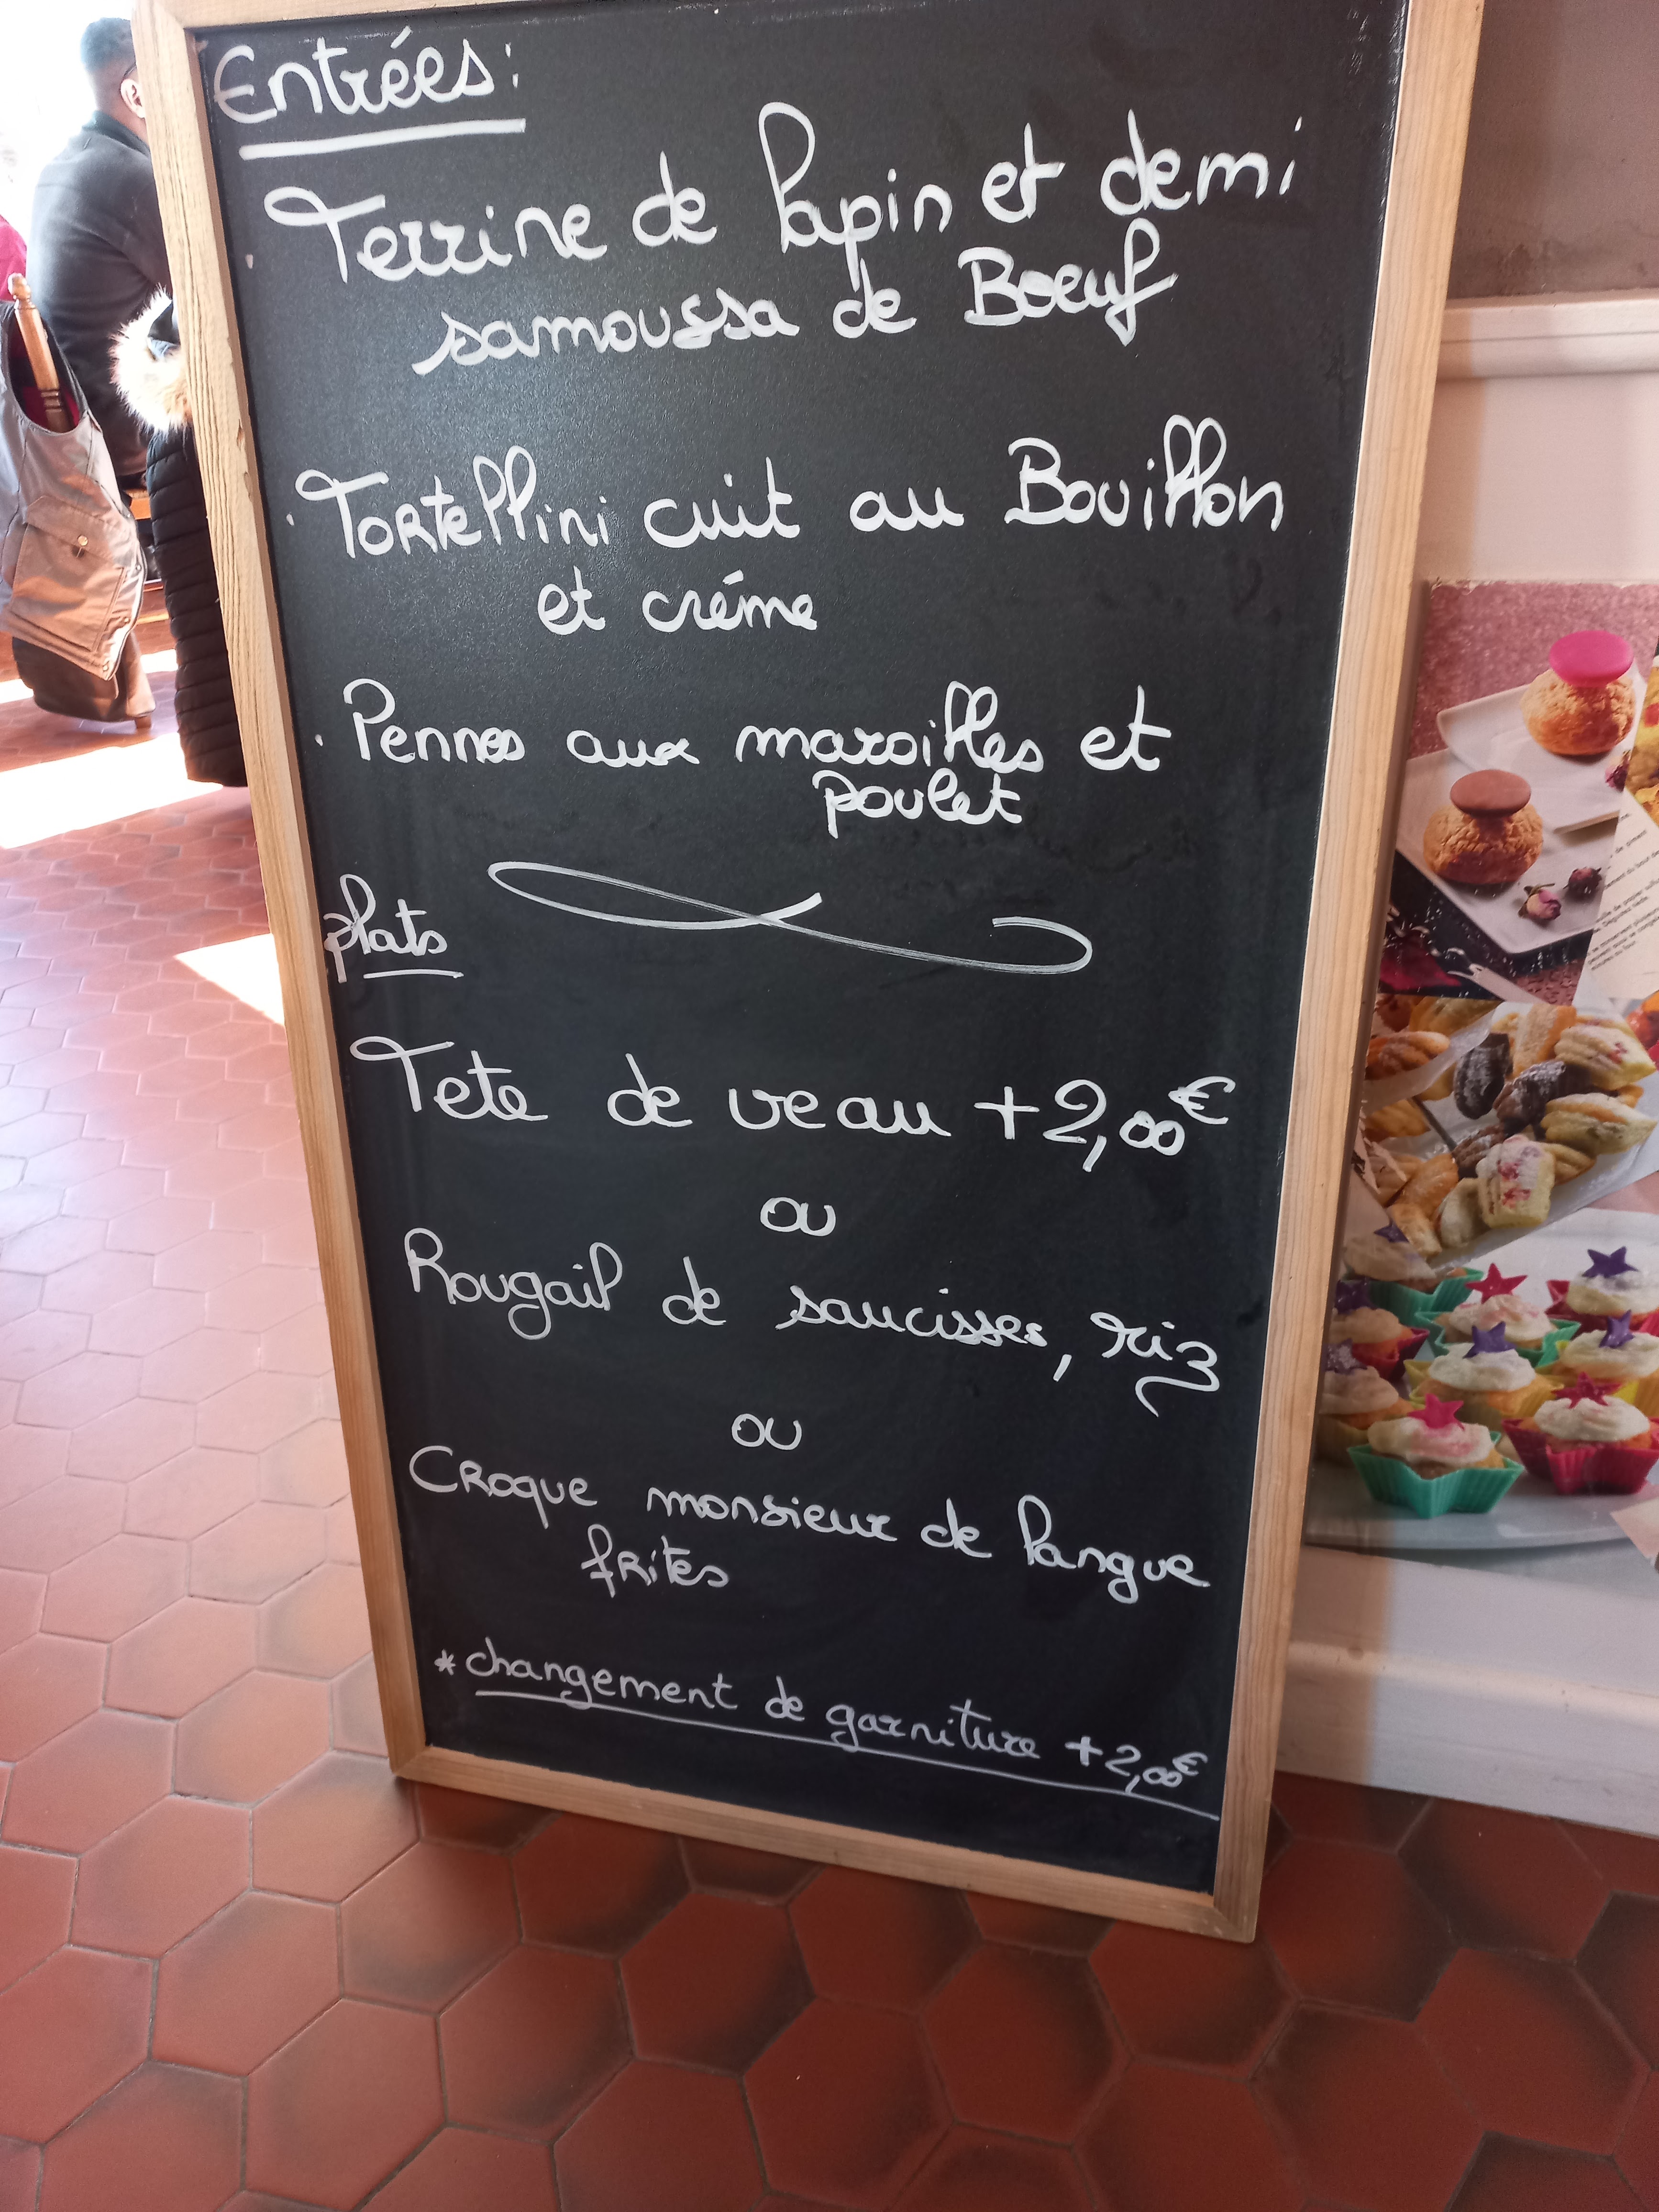 Entrées:
. Terrine de lapin et demi
samoussa de Boeuf
. Tortellini cuit au Bouillon
et créme
. Pennes aux maroilles et
poulet
plats
Tete de veau +2,00€
ou
Rougail de saucisses, riz
ou
Croque monsieur de langue
frites
* changement de garniture +2,00€